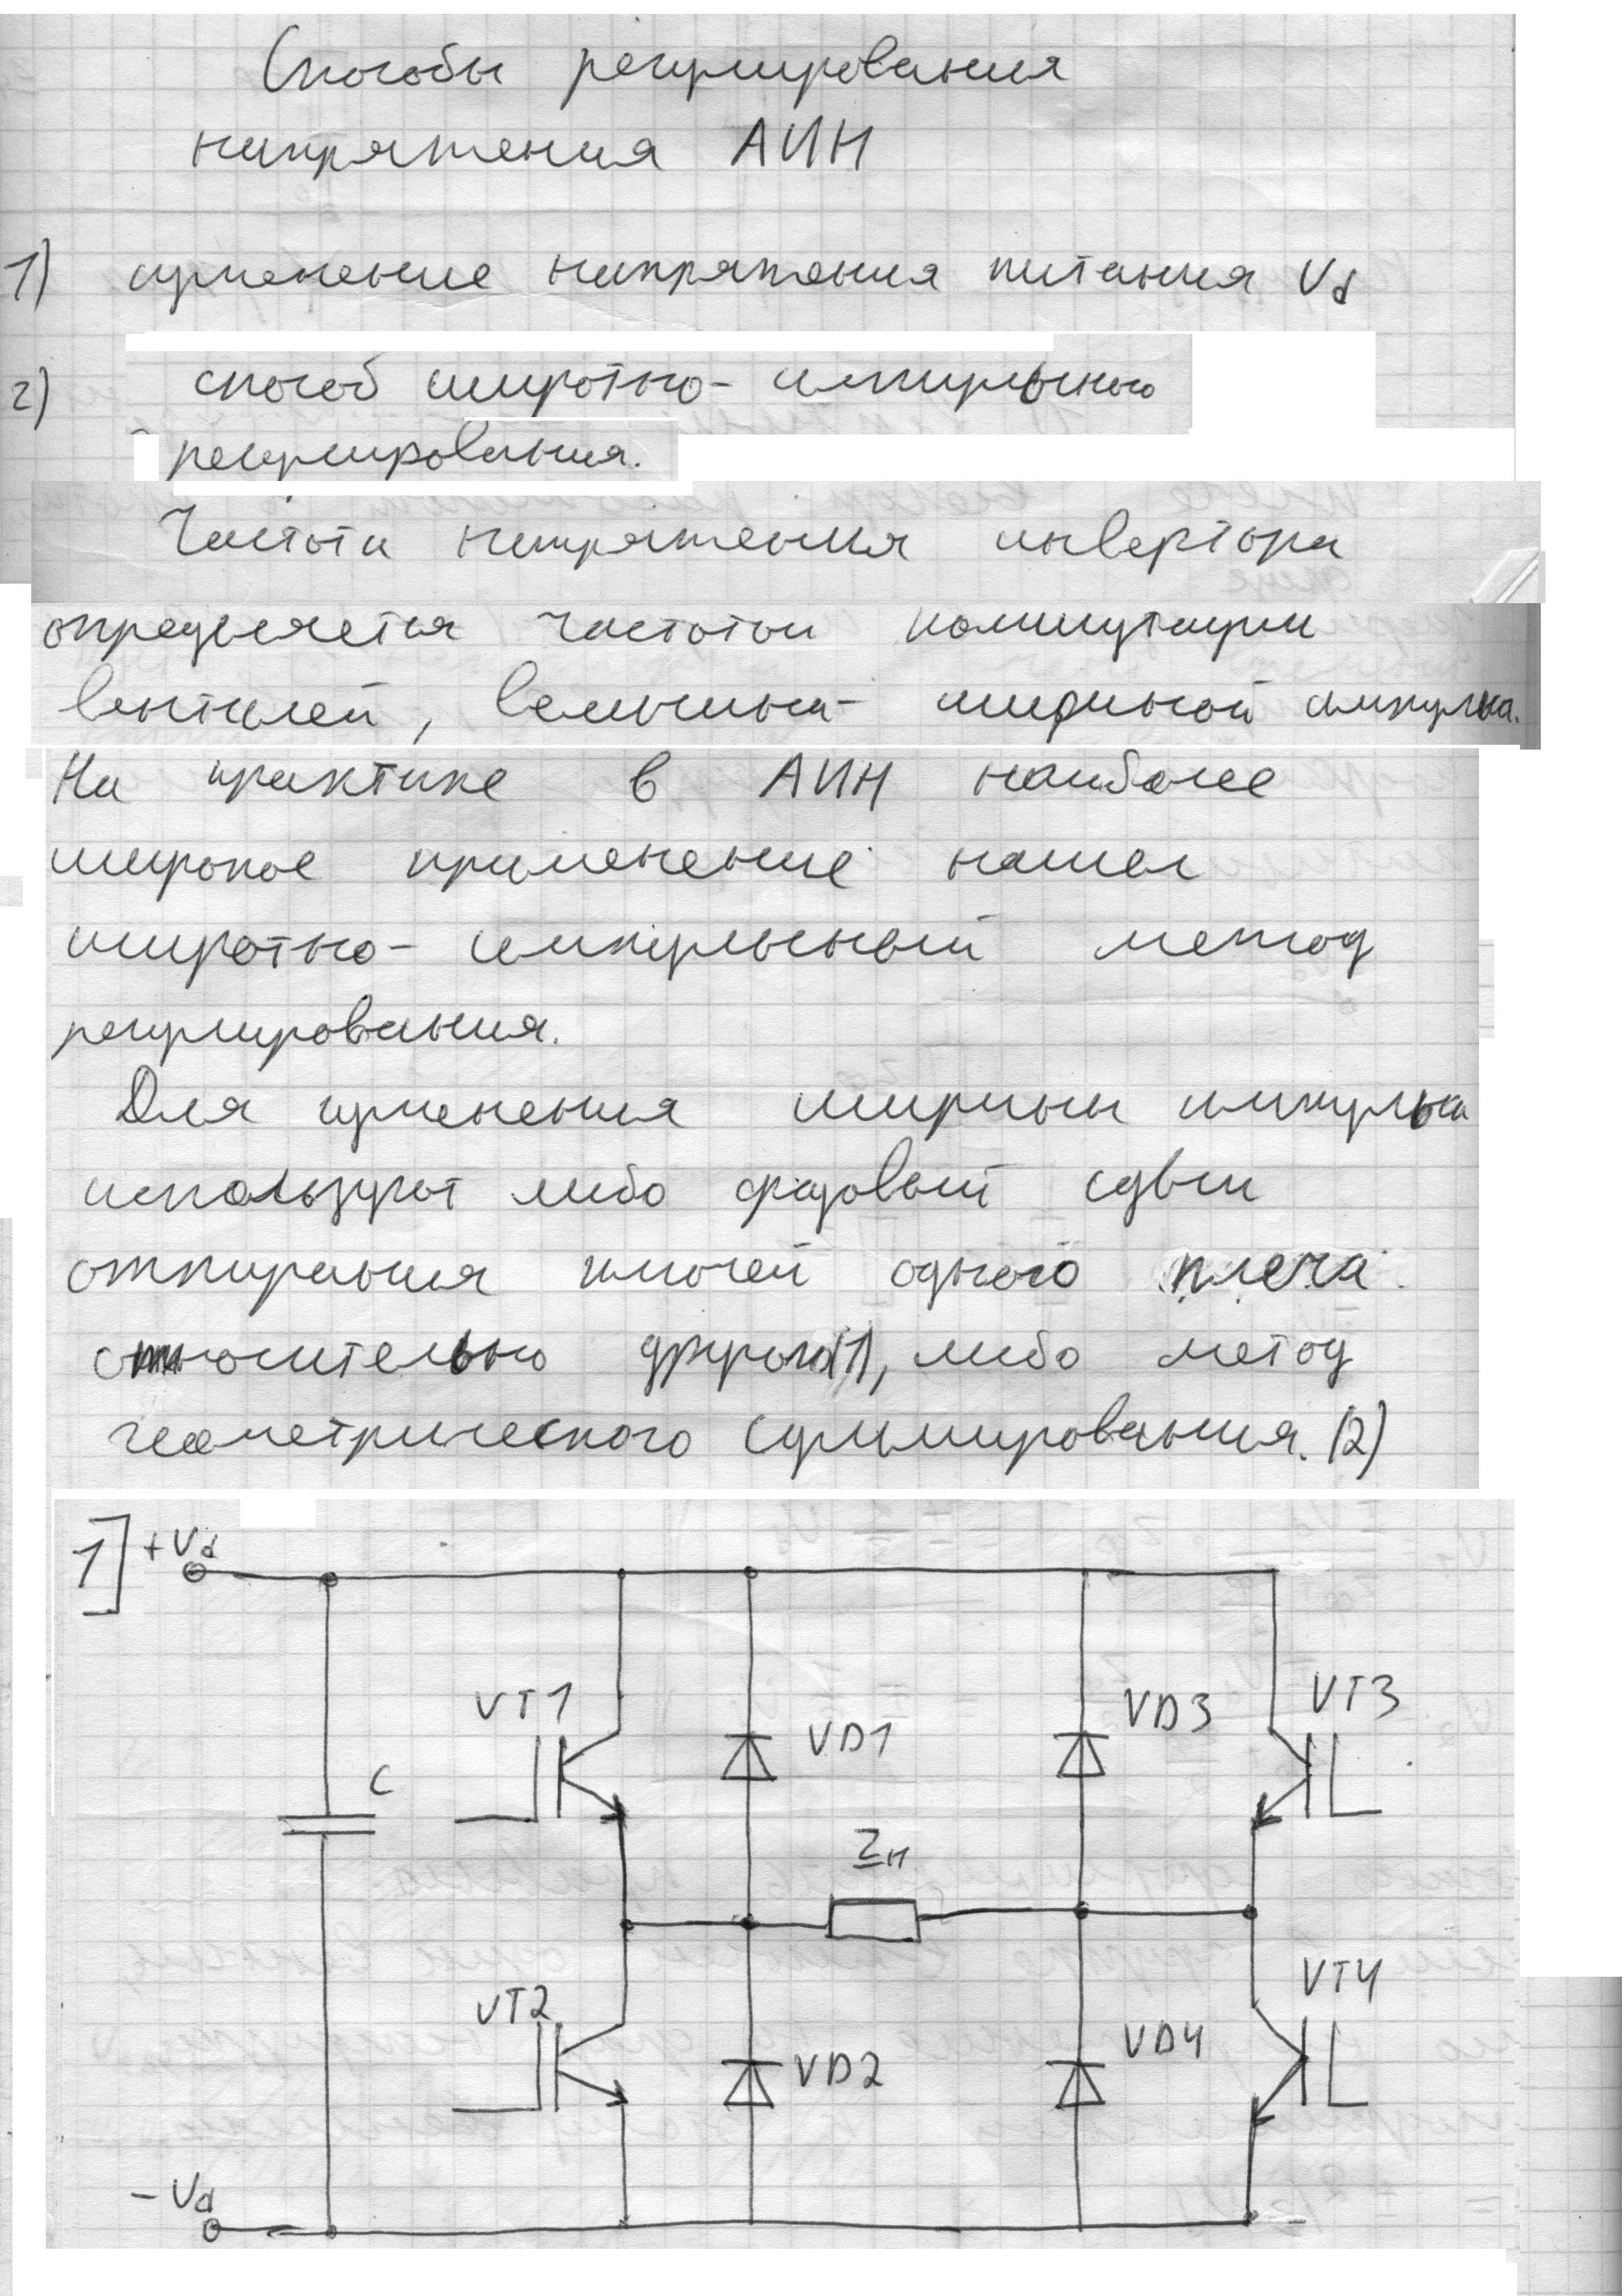 Способы регулирования
напряжения АИН
1) изменение напряжения питания Vd
2) способ широтно-импульсного
регулирования.
Частота напряжения инвертора
определяется частотой коммутации
вентилей, величина- шириной импульса.
На практике в АИН наиболее
широкое применение нашел
широтно-импульсный метод
регулирования.
Для изменения ширины импульса
используют либо фазовый сдвиг
отпирания ключей одного плеча
относительно другого(1), либо метод
геометрического суммирования.(2)
1] +Vd
VT1 VD1 VD3 VT3
C
Zн
VT2 VD2 VD4 VT4
-Vd